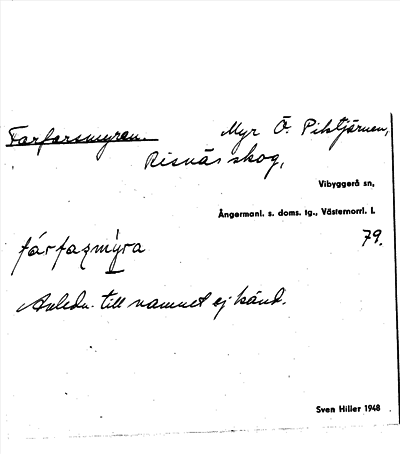 Farfarsmyren. Myr Ö. Piktjärnen,
Risnäs skog,
Vibyggerå sn,
Ångermanl. s. doms. tg., Västernorrl. l.
79.
fárfaʂmỳra
Anledn. till namnet ej känd.
Sven Hiller 1948